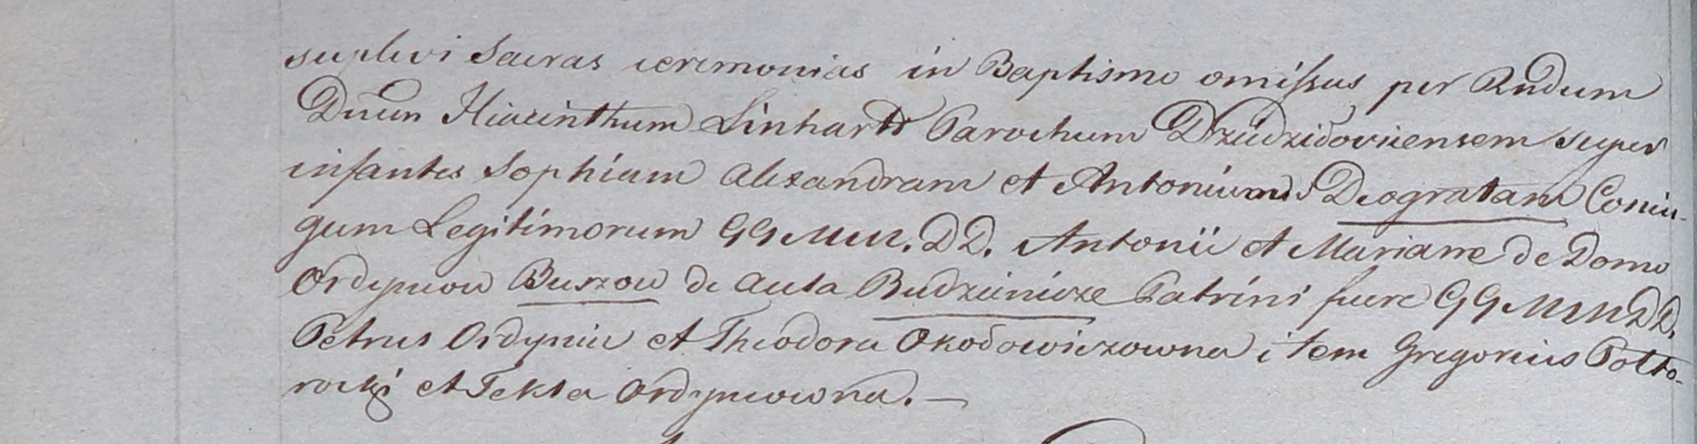 suplevi Sacras ceremonias in Baptismo omissas per Rndum
Dnum Hiacinthum Linhart Parochum Dzudzidoviciensem super
infantes Sophiam Alexandram et Antonium Deogratam Coniu-
gum Legitimorum GGMM. DD. Antonii et Marianne de Domo
Ordyncow Buszow de Aula Budzienicze Patrini fuere GGMMDD.
Petrus Ordyniec et Theodora Okodowiczowna item Gregorius Potto-
rocki et Tekla Ordyncowna. —